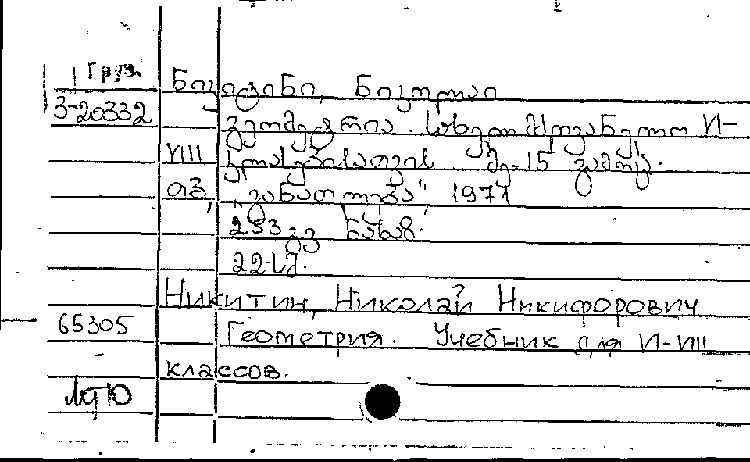 Груз.
ნიკიტინი, ნიკოლაი
3-20332
გეომეტრია. სახელმძღვანელო VI-
VIII კლასებისათვის. მე-15 გამოც.
თბ., "განათლება", 1977
253 გვ. ნახაზ.
22 კ.
Никитин, Николай Никифорович
65305 Геометрия. Учебник для VI-VIII
классов.